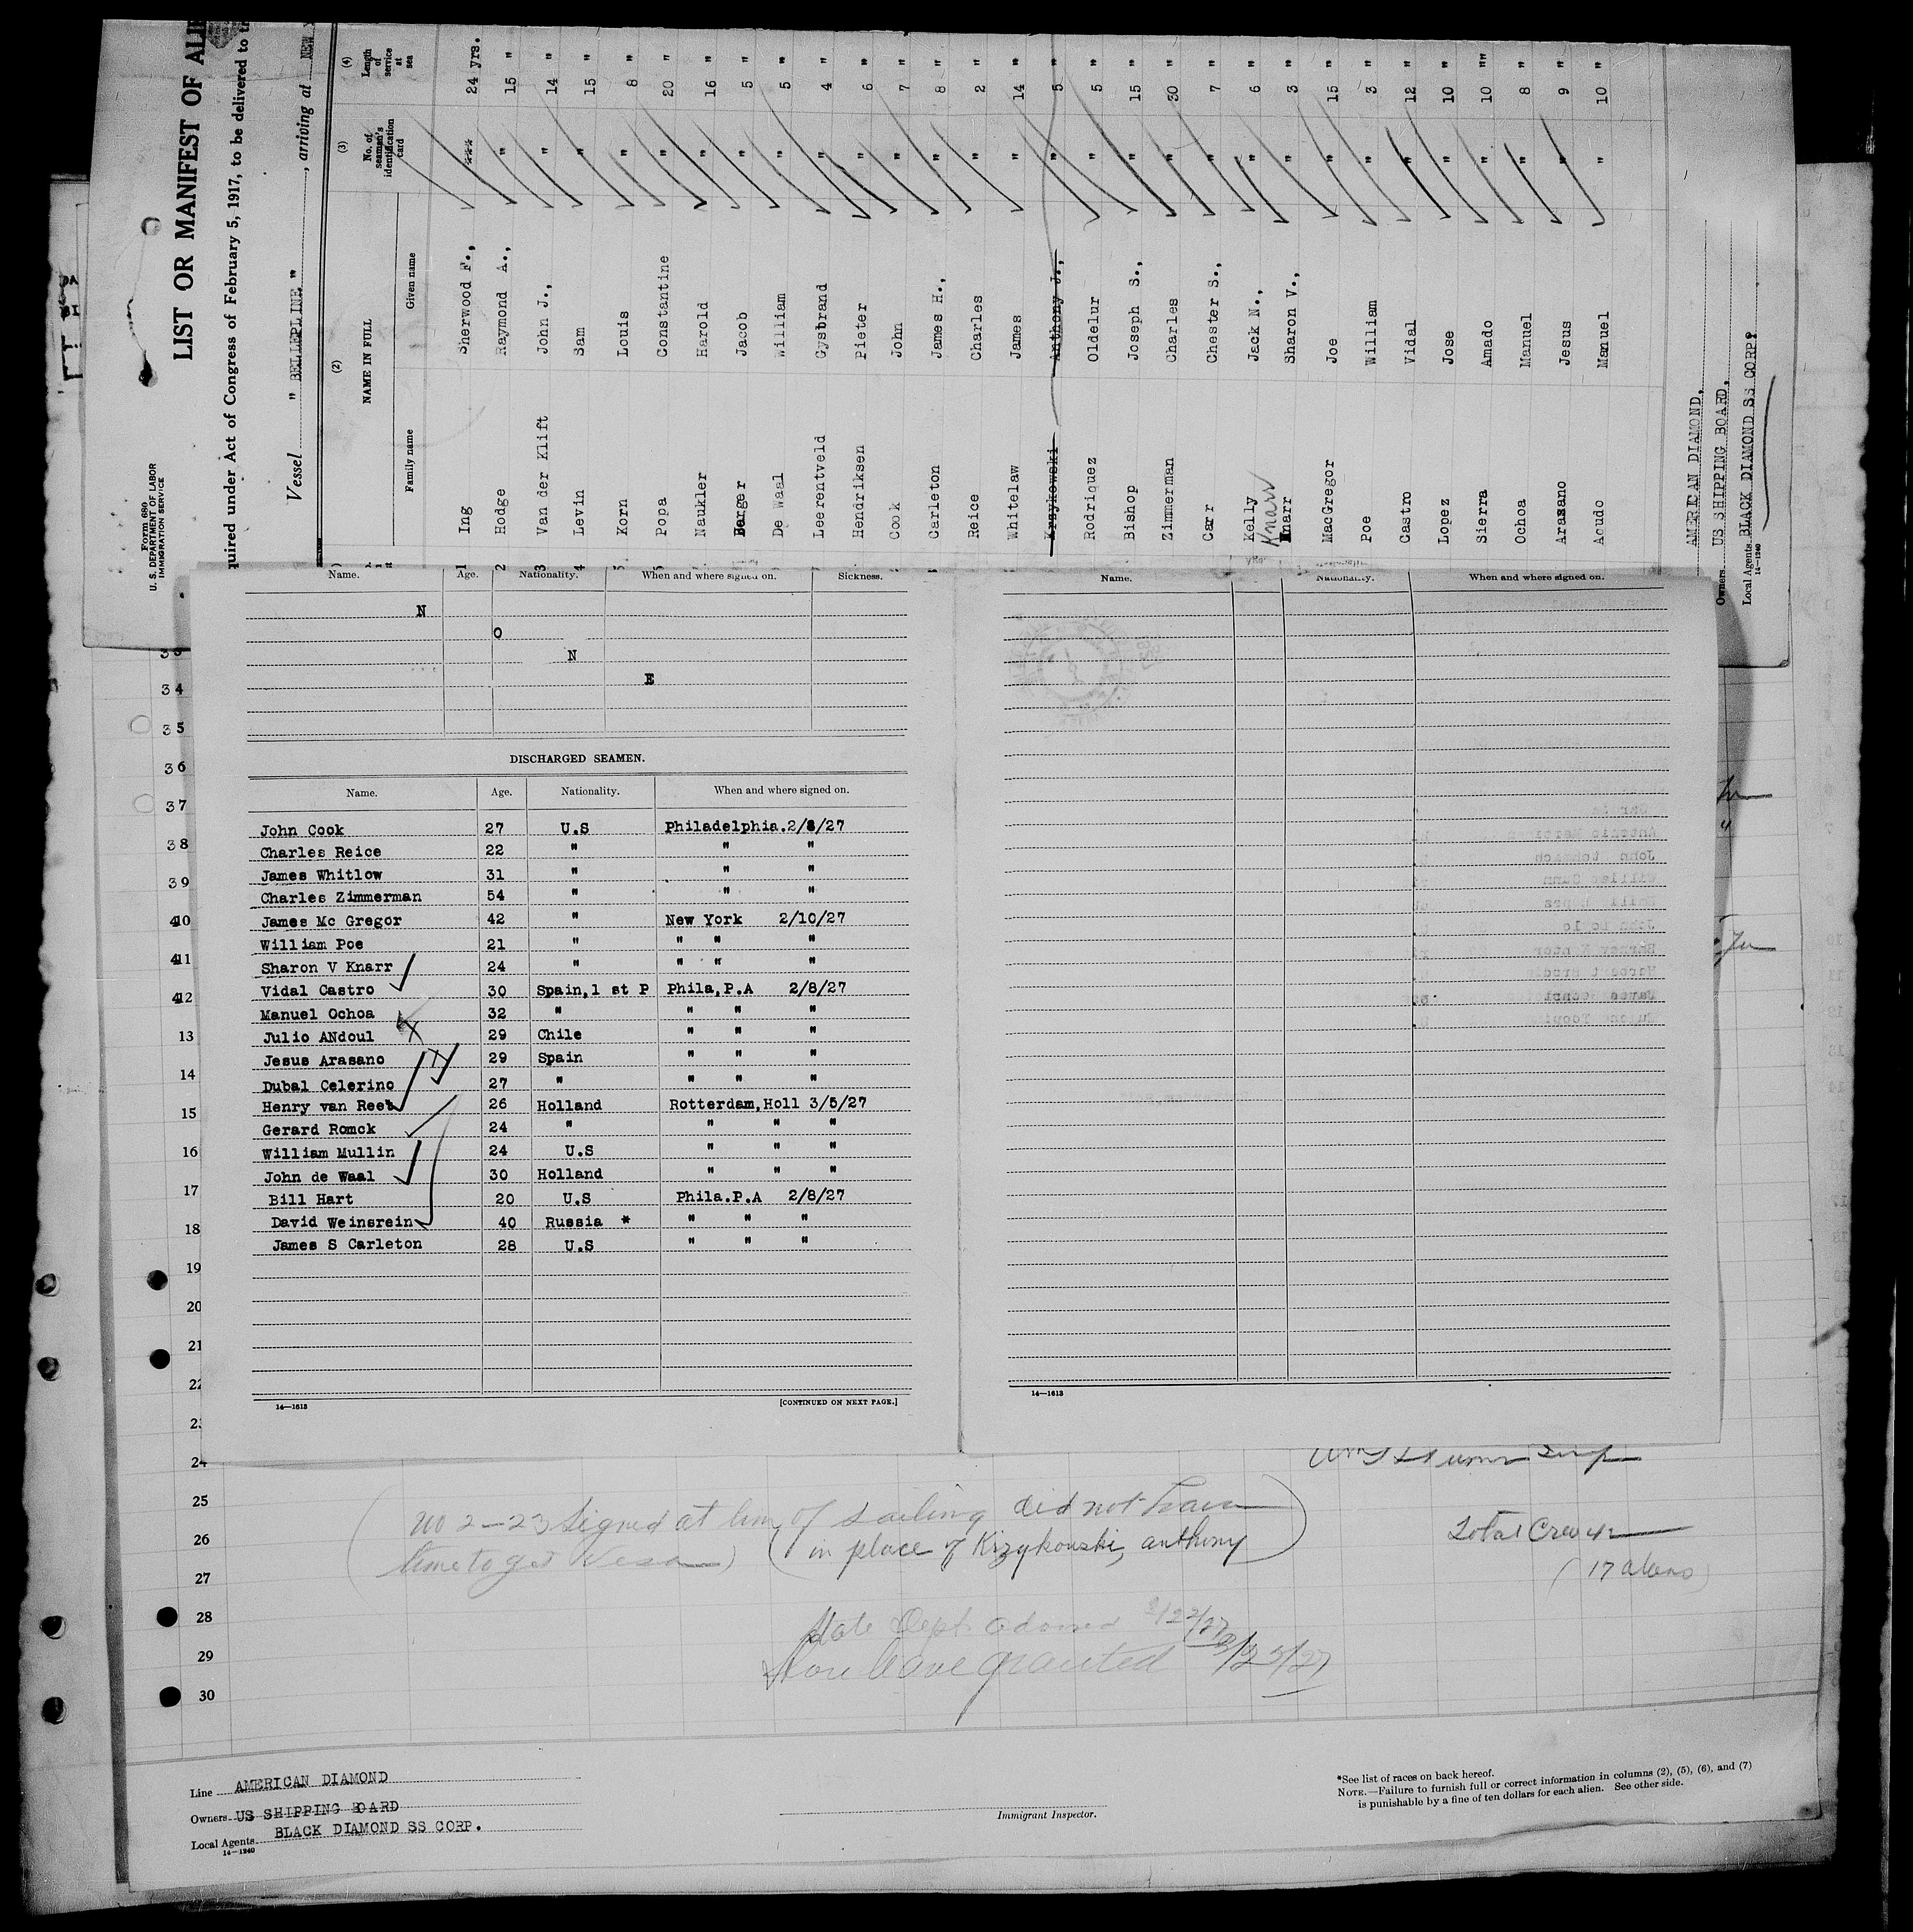 Form 689
U. S. DEPARTMENT OF LABOR
IMMIGRATION SERVICE
LIST OR MANIFEST OF
quired under Act of Congress of February 5, 1917, to be delivered to
Vessel " BELLEPLINE " , arriving at NEW
(2) (3) (4)
NAME IN FULL No. of seaman's identification card Length of service at sea
Family name Given name
1 Ing Sherwood F., *** 24 yrs.
2 Hodge Raymond A., " 15 "
3 Van der Klift John J., " 14 "
4 Levin Sam " 15 "
5 Korn Louis " 8 "
Popa Constantine " 20 "
Naukler Harold " 16 "
Barger Jacob " 5 "
De Waal William " 5 "
Leerentveld Gysbrand " 4 "
Hendriksen Pieter " 6 "
Cook John " 7 "
Carleton James H., " 8 "
Reice Charles " 2 "
Whitelaw James " 14 "
Krzykowski Anthony J., " 5 "
Rodriquez Oldelur " 5 "
Bishop Joseph S., " 15 "
Zimmerman Charles " 30 "
Carr Chester S., " 7 "
Kelly Jack N., " 6 "
Knarr
Knarr Sharon V., " 3 "
MacGregor Joe " 15 "
Poe William " 3 "
Castro Vidal " 12 "
Lopez Jose " 10 "
Sierra Amado " 10 ""
Ochoa Manuel " 8 "
Arasano Jesus " 9 "
Agudo Manuel " 10 "
AMERICAN DIAMOND,
Owners US SHIPPING BOARD,
Local Agents BLACK DIAMOND SS CORP.
14—1240
Name. Age. Nationality. When and where signed on. Sickness.
N
O
N
E
DISCHARGED SEAMEN.
Name. Age. Nationality. When and where signed on.
John Cook 27 U.S Philadelphia.2/8/27
Charles Reice 22 " " "
James Whitlow 31 " " "
Charles Zimmerman 54 " " "
James Mc Gregor 42 " New York 2/10/27
William Poe 21 " " " "
Sharon V Knarr 24 " " " "
Vidal Castro 30 Spain,1 st P Phila,P.A 2/8/27
Manuel Ochoa 32 " " " "
Julio ANdoul 29 Chile " " "
Jesus Arasano 29 Spain " " "
Dubal Celerino 27 " " " "
Henry van Reet 26 Holland Rotterdam,Holl 3/5/27
Gerard Romck 24 " " " "
William Mullin 24 U.S " " "
John de Waal 30 Holland " " "
Bill Hart 20 U.S Phila.P.A 2/8/27
David Weinsrein 40 Russia * " " "
James S Carleton 28 U.S " " "
14—1613 [CONTINUED ON NEXT PAGE.]
Name. Nationality. When and where signed on.
14—1613
34
35
36
37
38
39
40
41
42
13
14
15
16
17
18
19
20
21
22
23
24
25
26
27
28
29
30
No 2-23 Signed at time of sailing did not have
time to get Visa
in place of Kizykouski, anthony
Total Crew 42
(17 aliens)
State Dept. 3/22/27
Shore leave granted 3/25/27
Line AMERICAN DIAMOND
Owners US SHIPPING BOARD
Local Agents BLACK DIAMOND SS CORP.
14—1240
Immigrant Inspector.
*See list of races on back hereof.
NOTE.—Failure to furnish full or correct information in columns (2), (5), (6), and (7)
is punishable by a fine of ten dollars for each alien. See other side.